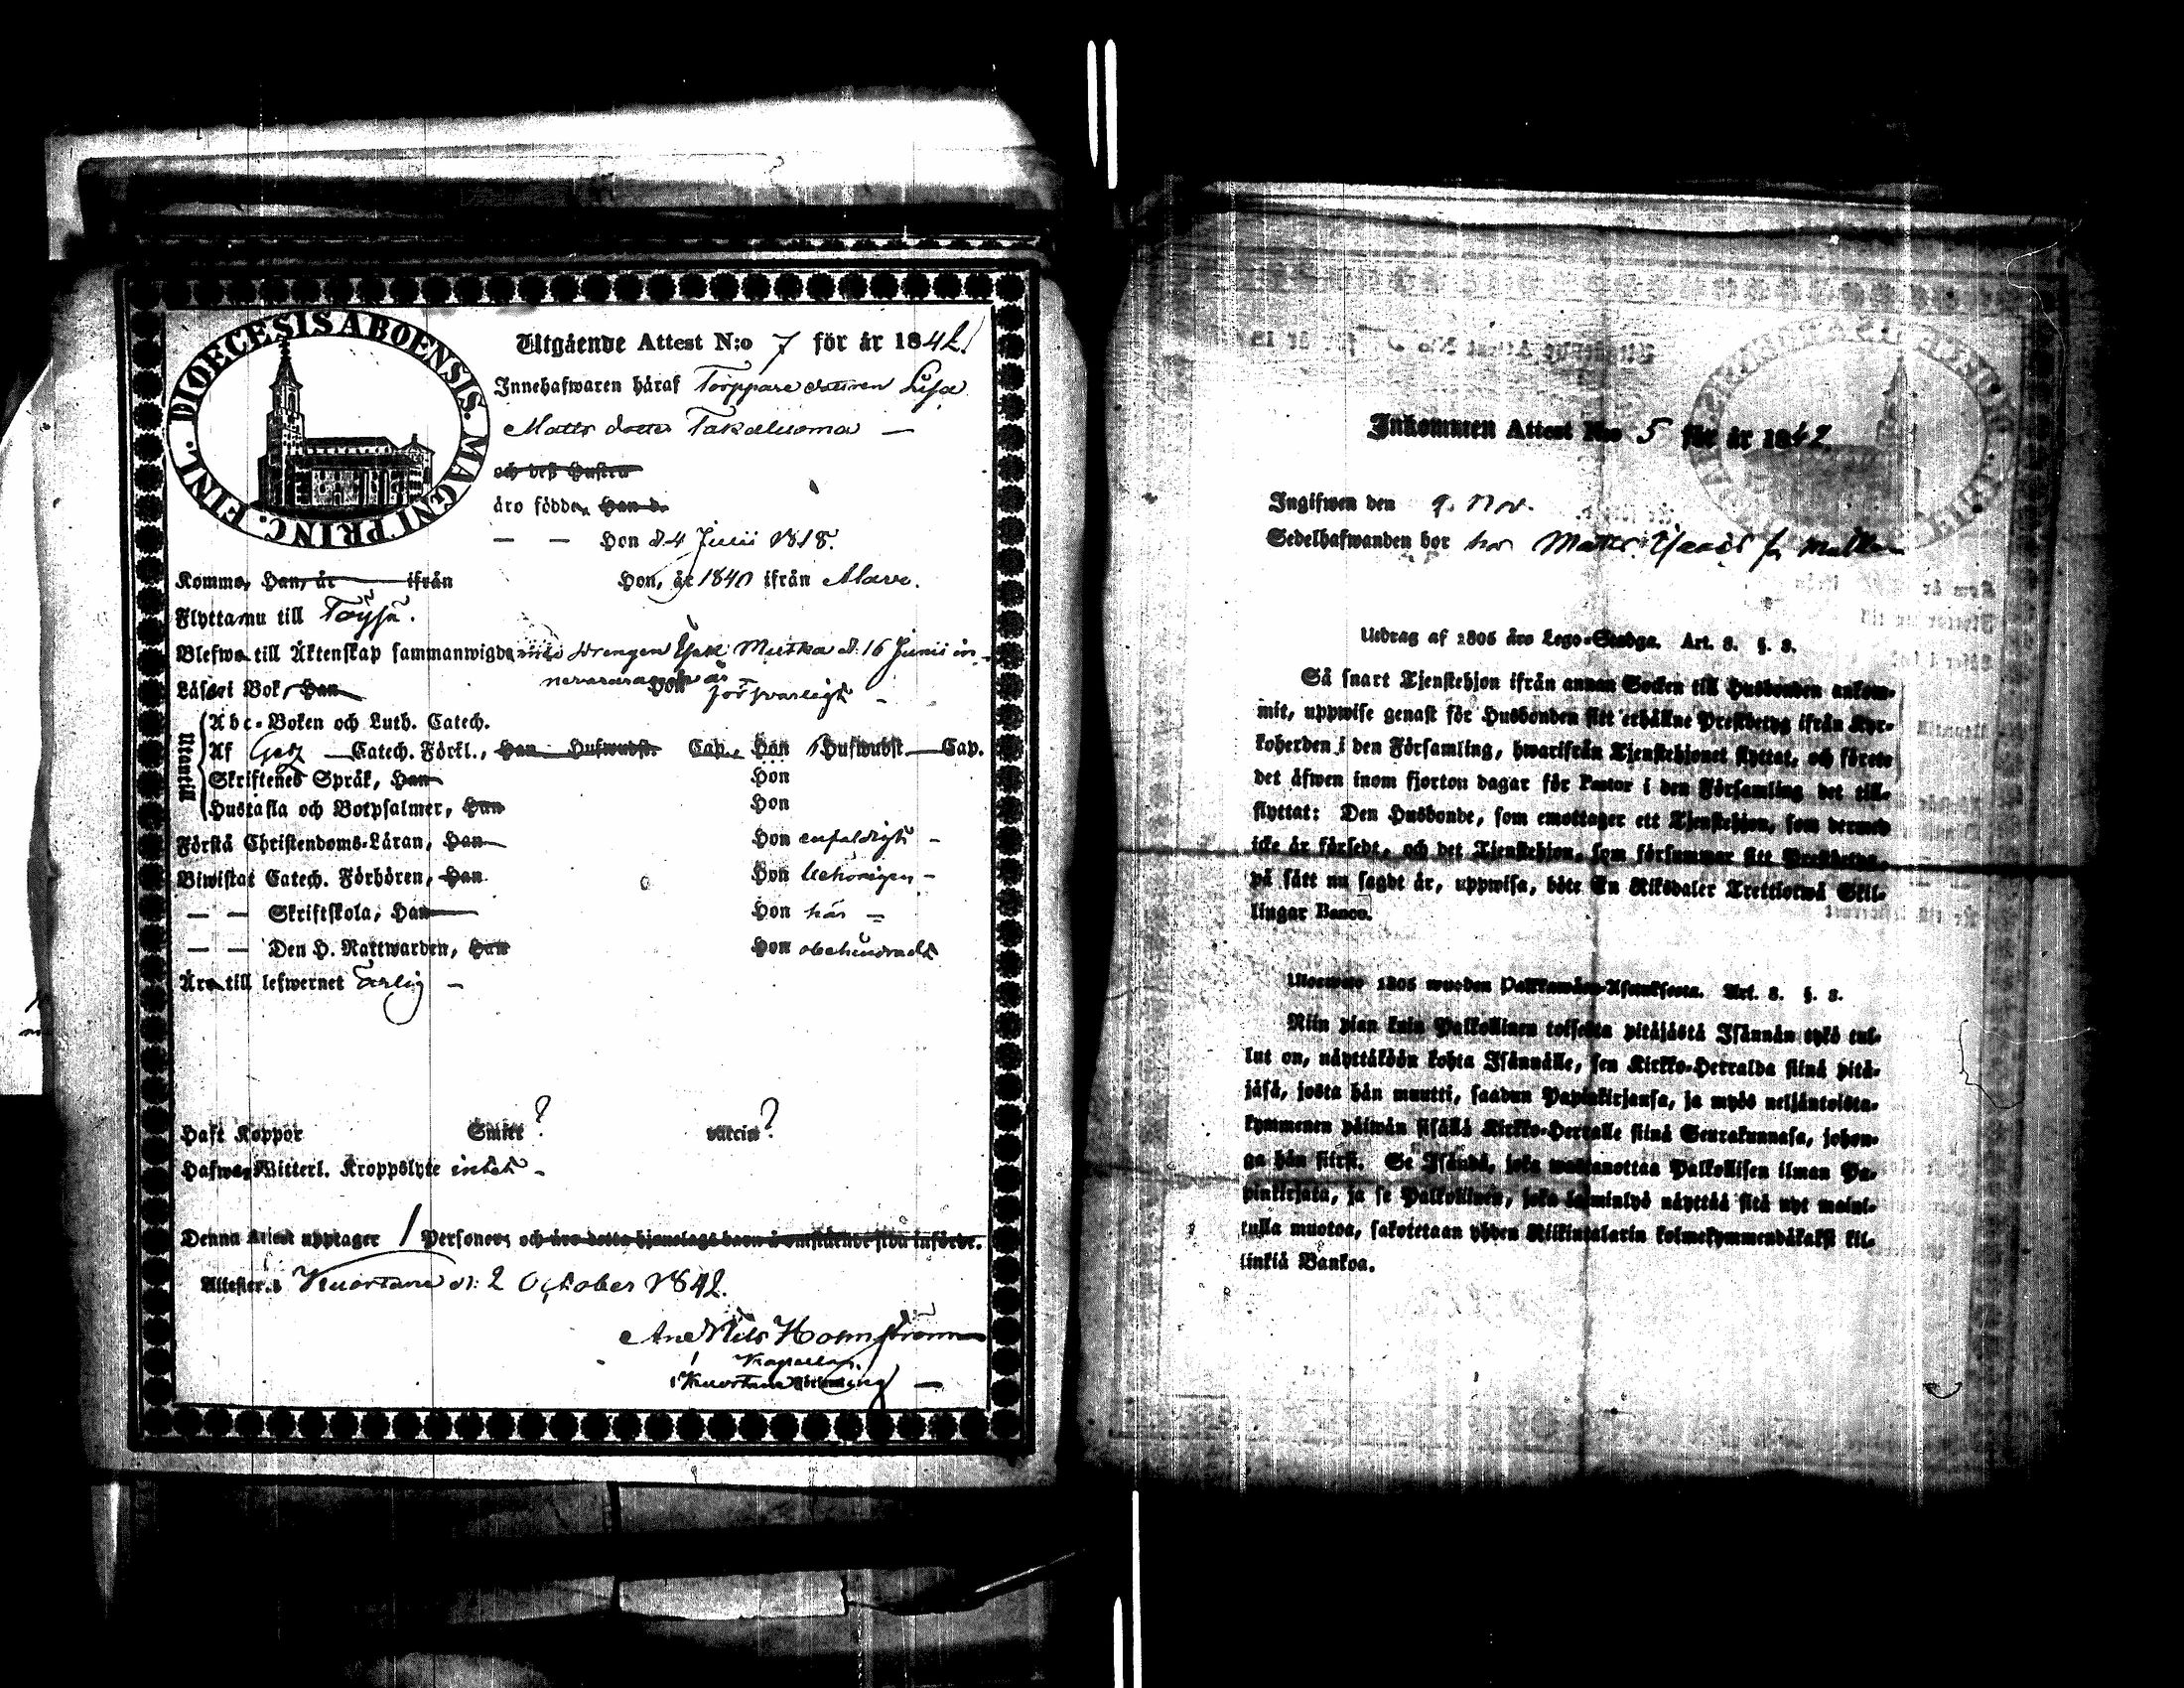 DIOECESIS ABOENSIS. MAGNI PRINC. FINL.
Utgående Attest N:o 7 för år 1842.
Innehafwaren häraf Torppare dottren Lisa
Matts dotter Takaluoma —
och deß Hustru
äro födde, Han d.
— — Hon d. 4 Junii 1818.
Komme, Han, år ifrån Hon, år 1840 ifrån Alavo.
Flyttarnu till Töysä.
Blefwe till Äktenskap sammanwigde med drengen Isak Mutka d. 16 Junii in-
nevarande år —
Läser i Bok, Han Hon försvarligt —
Utantill
Abc-Boken och Luth. Catech.
Af Catech. Förkl., Han Hufwudst. Cap., Hon Hufwudst. Cap.
Skriftenes Språk, Han Hon
Hustafla och Botpsalmer, Han Hon
Förstå Christendoms-Läran, Han Hon enfaldigt —
Biwistat Catech. Förhören, Han Hon behörigen —
— — Skriftskola, Han Hon här —
— — Den H. Nattwarden, Han Hon obehindradt
Äro till lefwernet Ärlig —
Haft Koppor Smitt? vaccin?
Hafwa Witterl. Kroppslyte intet —
Denna Attest upptager 1 Personer, och äro detta hjonelags barn å omstående sida införde.
Attester.s Kuortane d. 2 October 1842.
And Nils Holmström
Kapellan
i Kuortane Församling —
Inkommen Attest N:o 5 för år 1842.
Ingifwen den 9. Nov.
Sedelhafwanden bor hos Matts
Utdrag af 1805 års Lego-Stadga. Art. 3. §. 3.
Så snart Tjenstehjon ifrån annan Socken till Husbonden ankom-
mit, uppwise genast för Husbonden sitt erhållne Prestbetyg ifrån Kyr-
koherden i den Församling, hwarifrån Tjenstehjonet flyttat, och förete
det äfwen inom fjorton dagar för Pastor i den Församling det till-
flyttat: Den Husbonde, som emottager ett Tjenstehjon, som dermed
icke är försedt, och det Tjenstehjon, som försummar sitt Prestbetyg,
på sätt nu sagdt är, uppwisa, böte En Riksdaler Trettiotwå Skil-
lingar Banco.
Ulosweto 1805 wuoden Palkkawäen-Asetuksesta. Art. 3. §. 3.
Niin pian kuin Palkollinen toisesta pitäjästä Isännän tykö tul-
lut on, näyttäköön kohta Isännälle, sen Kirkko-Herralda siinä pitä-
jäsä, josta hän muutti, saadun Papinkirjansa, ja myös neljäntoista-
kymmenen päiwän sisällä Kirkko-Herralle siinä Seurakunnasa, johon-
ga hän siirsi. Se Isändä, joka wastanottaa Palkollisen ilman Pa-
pinkirjata, ja se Palkollinen, joka laiminlyö näyttää sitä nyt maini-
tulla muotoa, sakotetaan yhden Riikintalarin kolmekymmendäkaksi kil-
linkiä Bankoa.